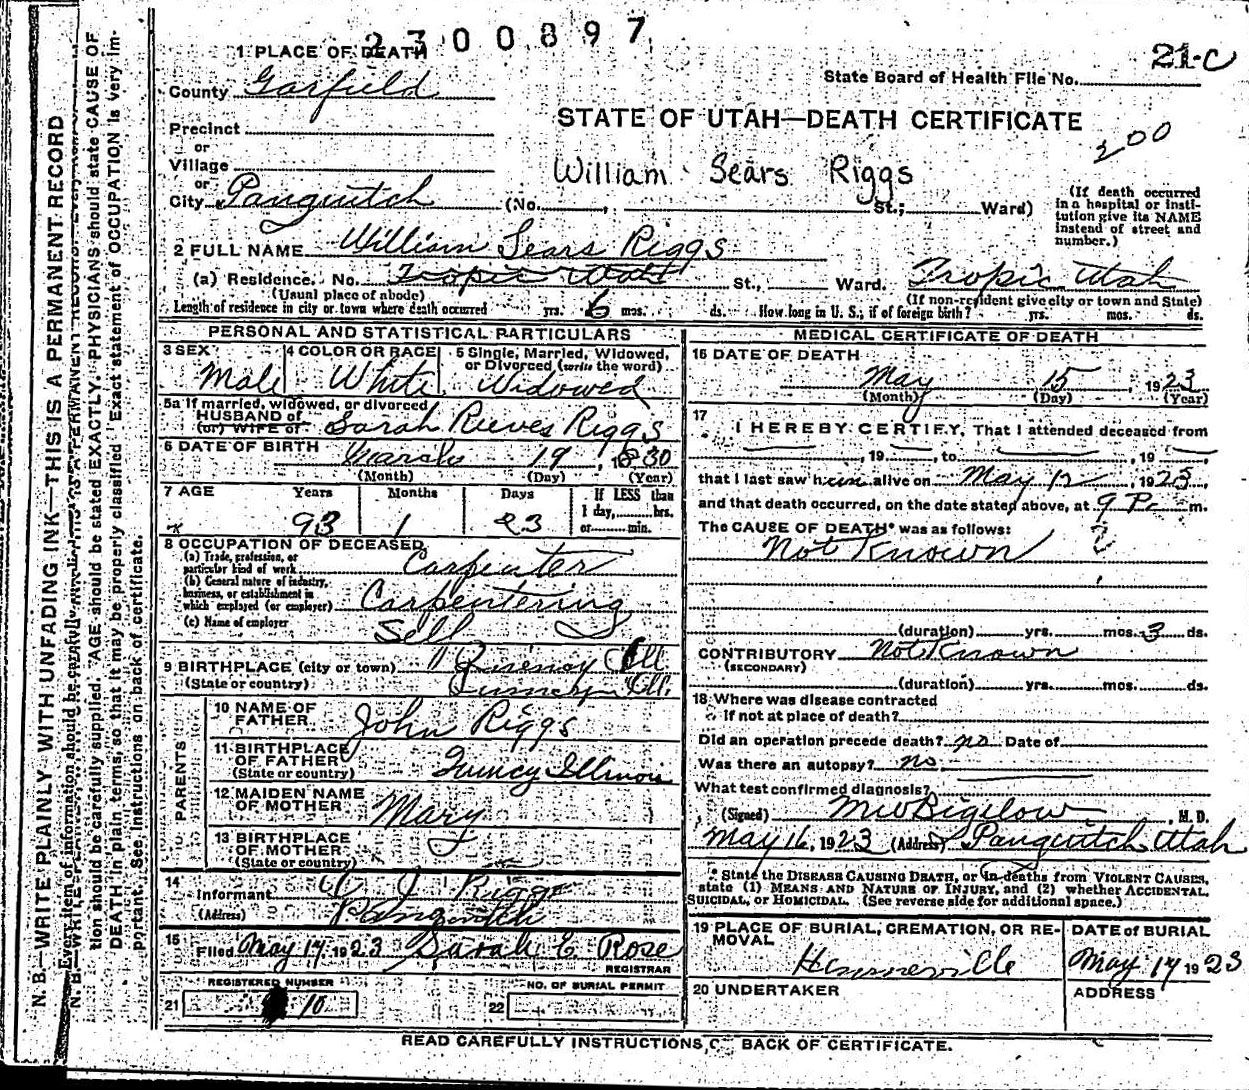 2300897
21-C
1 PLACE OF DEATH
State Board of Health File No.
County Garfield
STATE OF UTAH—DEATH CERTIFICATE
Precinct
200
or
Village
William Sears Riggs
or
City Panguitch (No. , St.; Ward)
(If death occurred
in a hospital or insti-
tution give its NAME
instead of street and
number.)
2 FULL NAME William Sears Riggs
(a) Residence. No. Tropic Utah St., Ward. Tropic Utah
(Usual place of abode) (If non-resident give city or town and State)
Length of residence in city or town where death occurred yrs. 6 mos. ds. How long in U. S., if of foreign birth? yrs. mos. ds.
PERSONAL AND STATISTICAL PARTICULARS
3 SEX 4 COLOR OR RACE 5 Single, Married, Widowed,
or Divorced (write the word)
Male White Widowed
5a If married, widowed, or divorced
HUSBAND of
(or) WIFE of Sarah Reeves Riggs
6 DATE OF BIRTH March 19, 1830
(Month) (Day) (Year)
7 AGE Years Months Days If LESS than
1 day, hrs.
or min.
93 1 23
8 OCCUPATION OF DECEASED
(a) Trade, profession, or
particular kind of work Carpenter
(b) General nature of industry,
business, or establishment in
which employed (or employer) Carpentering
(c) Name of employer Self
9 BIRTHPLACE (city or town) " Quincy Ill
(State or country) Quincy Ill.
PARENTS
10 NAME OF
FATHER John Riggs
11 BIRTHPLACE
OF FATHER
(State or country) Quincy Illinois
12 MAIDEN NAME
OF MOTHER Mary
13 BIRTHPLACE
OF MOTHER
(State or country)
14
Informant J Riggs
(Address) Panguitch
15
Filed May 17 1923 Sarah E. Rose
REGISTRAR
REGISTERED NUMBER NO. OF BURIAL PERMIT
21 10 22
MEDICAL CERTIFICATE OF DEATH
16 DATE OF DEATH
May 15, 1923
(Month) (Day) (Year)
17
I HEREBY CERTIFY, That I attended deceased from
, 19 , to , 19
that I last saw him alive on May 12, 1923,
and that death occurred, on the date stated above, at 9 P. m.
The CAUSE OF DEATH* was as follows:
Not Known ?
(duration) yrs. mos. 3 ds.
CONTRIBUTORY Not Known
(SECONDARY)
(duration) yrs. mos. ds.
18 Where was disease contracted
If not at place of death?
Did an operation precede death? no Date of
Was there an autopsy? no
What test confirmed diagnosis?
(Signed) M W Bigelow, M. D.
May 16, 1923 (Address) Panguitch Utah
* State the DISEASE CAUSING DEATH, or in deaths from VIOLENT CAUSES,
state (1) MEANS AND NATURE OF INJURY, and (2) whether ACCIDENTAL,
SUICIDAL, or HOMICIDAL. (See reverse side for additional space.)
19 PLACE OF BURIAL, CREMATION, OR RE-
MOVAL
DATE of BURIAL
Henrieville May 17 1923
20 UNDERTAKER ADDRESS
READ CAREFULLY INSTRUCTIONS, BACK OF CERTIFICATE.
N. B.—WRITE PLAINLY WITH UNFADING INK—THIS IS A PERMANENT RECORD
Every item of information should be carefully supplied. AGE should be stated EXACTLY. PHYSICIANS should state CAUSE OF
DEATH in plain terms, so that it may be properly classified. Exact statement of OCCUPATION is very im-
portant. See instructions on back of certificate.